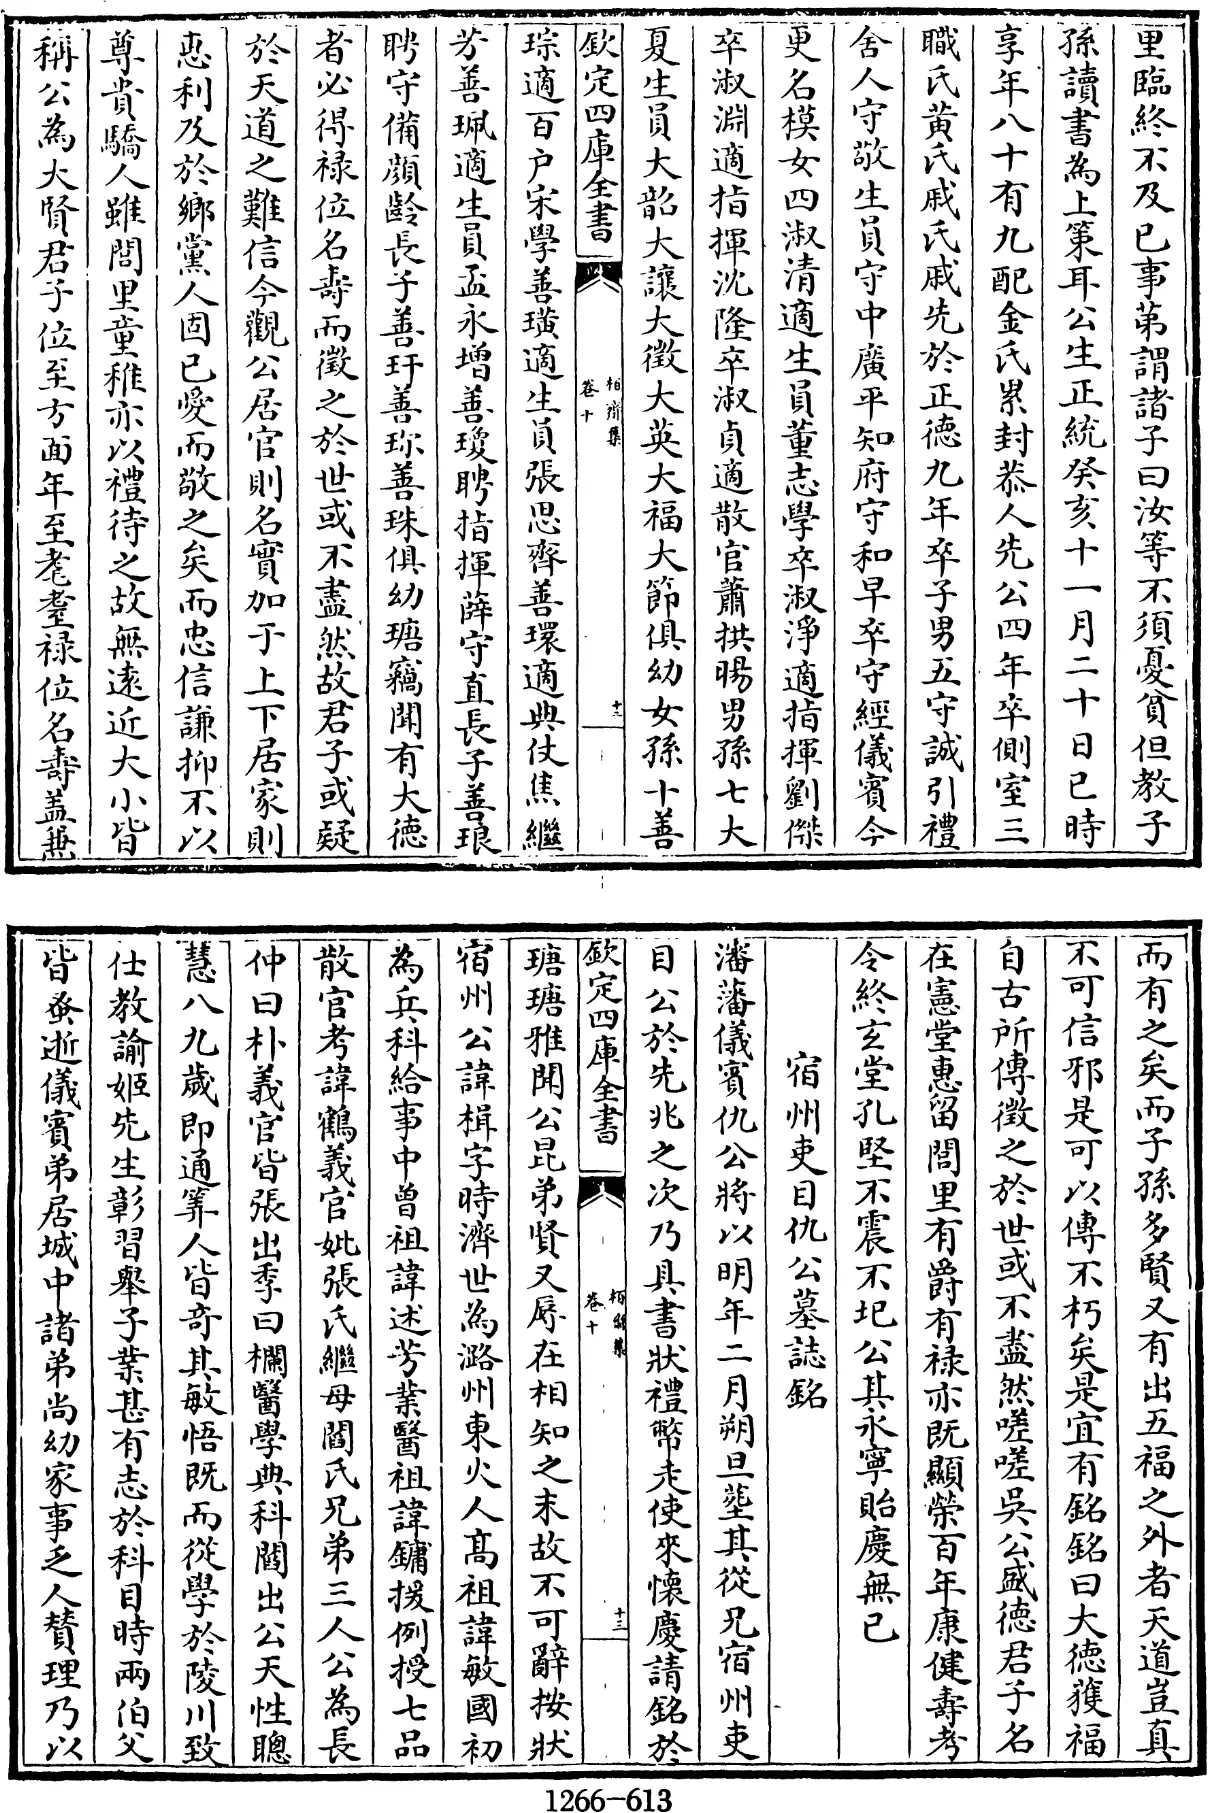 里臨終不及已事第謂諸子曰汝等不須憂貧但教子
孫讀書為上策耳公生正統癸亥十一月二十日巳時
享年八十有九配金氏累封恭人先公四年卒側室三
職氏黄氏戚氏戚先於正德九年卒子男五守誠引禮
舍人守敬生員守中廣平知府守和早卒守經儀賓今
更名模女四淑清適生員董志學卒淑淨適指揮劉傑
卒淑淵適指揮沈隆卒淑貞適散官蕭拱暘男孫七大
夏生員大韶大讓大徵大英大福大節俱幼女孫十善
欽定四庫全書
栢齋集
卷十
十二
琮適百户宋學善璜適生員張思齊善環適典仗焦繼
芳善珮適生員孟永增善瓊聘指揮薛守直長子善琅
聘守備顔齡長子善玕善珎善珠俱幼瑭竊聞有大德
者必得禄位名壽而徵之於世或不盡然故君子或疑
於天道之難信今觀公居官則名實加于上下居家則
惠利及於鄉黨人固已愛而敬之矣而忠信謙抑不以
尊貴驕人雖閭里童稚亦以禮待之故無遠近大小皆
稱公為大賢君子位至方面年至耄耋禄位名壽盖兼
而有之矣而子孫多賢又有出五福之外者天道豈真
不可信邪是可以傳不朽矣是宜有銘銘曰大德獲福
自古所傳徵之於世或不盡然嗟嗟吳公盛德君子名
在憲堂惠留閭里有爵有禄亦既顯榮百年康健壽考
令終玄堂孔堅不震不圮公其永寧貽慶無已
宿州吏目仇公墓誌銘
瀋藩儀賓仇公將以明年二月朔旦塟其從兄宿州吏
目公於先兆之次乃具書狀禮幣走使來懐慶請銘於
欽定四庫全書
栢齋集
卷十
十三
瑭瑭雅聞公昆弟賢又辱在相知之末故不可辭按狀
宿州公諱楫字時濟世為潞州東火人髙祖諱敏國初
為兵科給事中曽祖諱述芳業醫祖諱鏞援例授七品
散官考諱鶴義官妣張氏繼母閻氏兄弟三人公為長
仲曰朴義官皆張出季曰欄醫學典科閻出公天性聰
慧八九歲即通筭人皆奇其敏悟既而從學於陵川致
仕教諭姬先生彰習舉子業甚有志於科目時兩伯父
皆蚤逝儀賓弟居城中諸弟尚幼家事乏人賛理乃以
1266-613